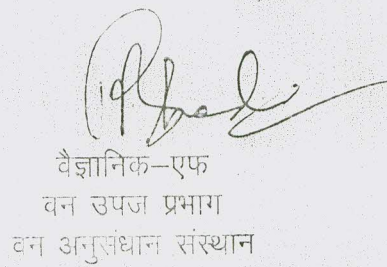 वैज्ञानिक-एफ
वन उपज प्रभाग
वन अनुसंधान संस्थान